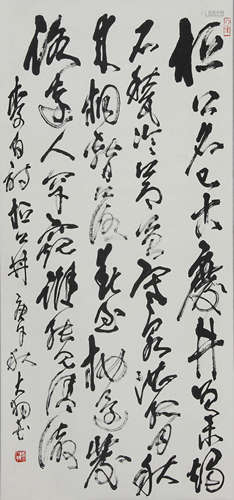 桓公名已古廢井曾未竭
石甃冷蒼苔寒泉湛孤月秋
來桐暫落春至桃還發
路遠人罕窺誰能見清澈
李白詩桓公井庚午秋大翔書